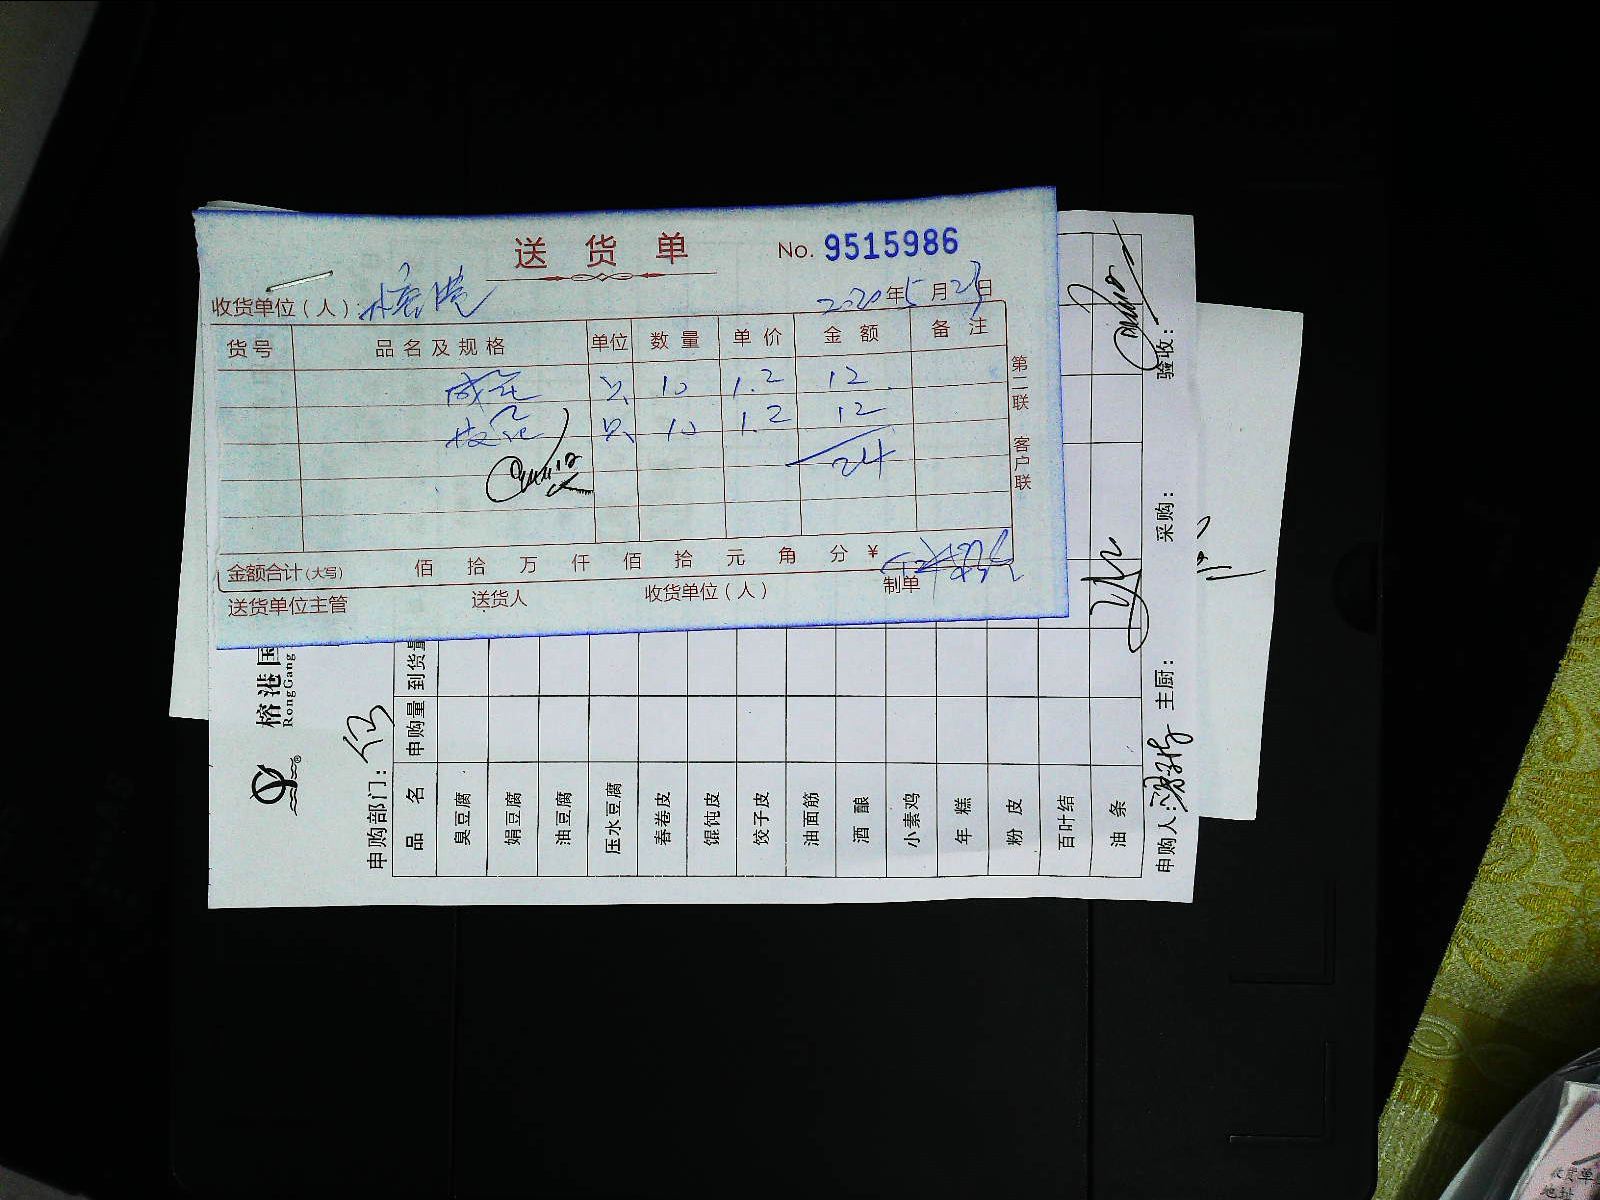 送货单 No. 9515986
收货单位（人）： 榕港 2020年5月23日
货号 品名及规格 单位 数量 单价 金额 备注
只 10 1.2 12
只 10 1.2 12
24
金额合计（大写） 佰 拾 万 仟 佰 拾 元 角 分 ¥
送货单位主管 送货人 收货单位（人） 制单
第二联 客户联
榕港国
RongGang
申购部门：
品名 申购量 到货量
臭豆腐
娟豆腐
油豆腐
压水豆腐
春卷皮
馄饨皮
饺子皮
油面筋
酒酿
小素鸡
年糕
粉皮
百叶结
油条
申购人： 主厨： 采购： 验收：
收货单
地址